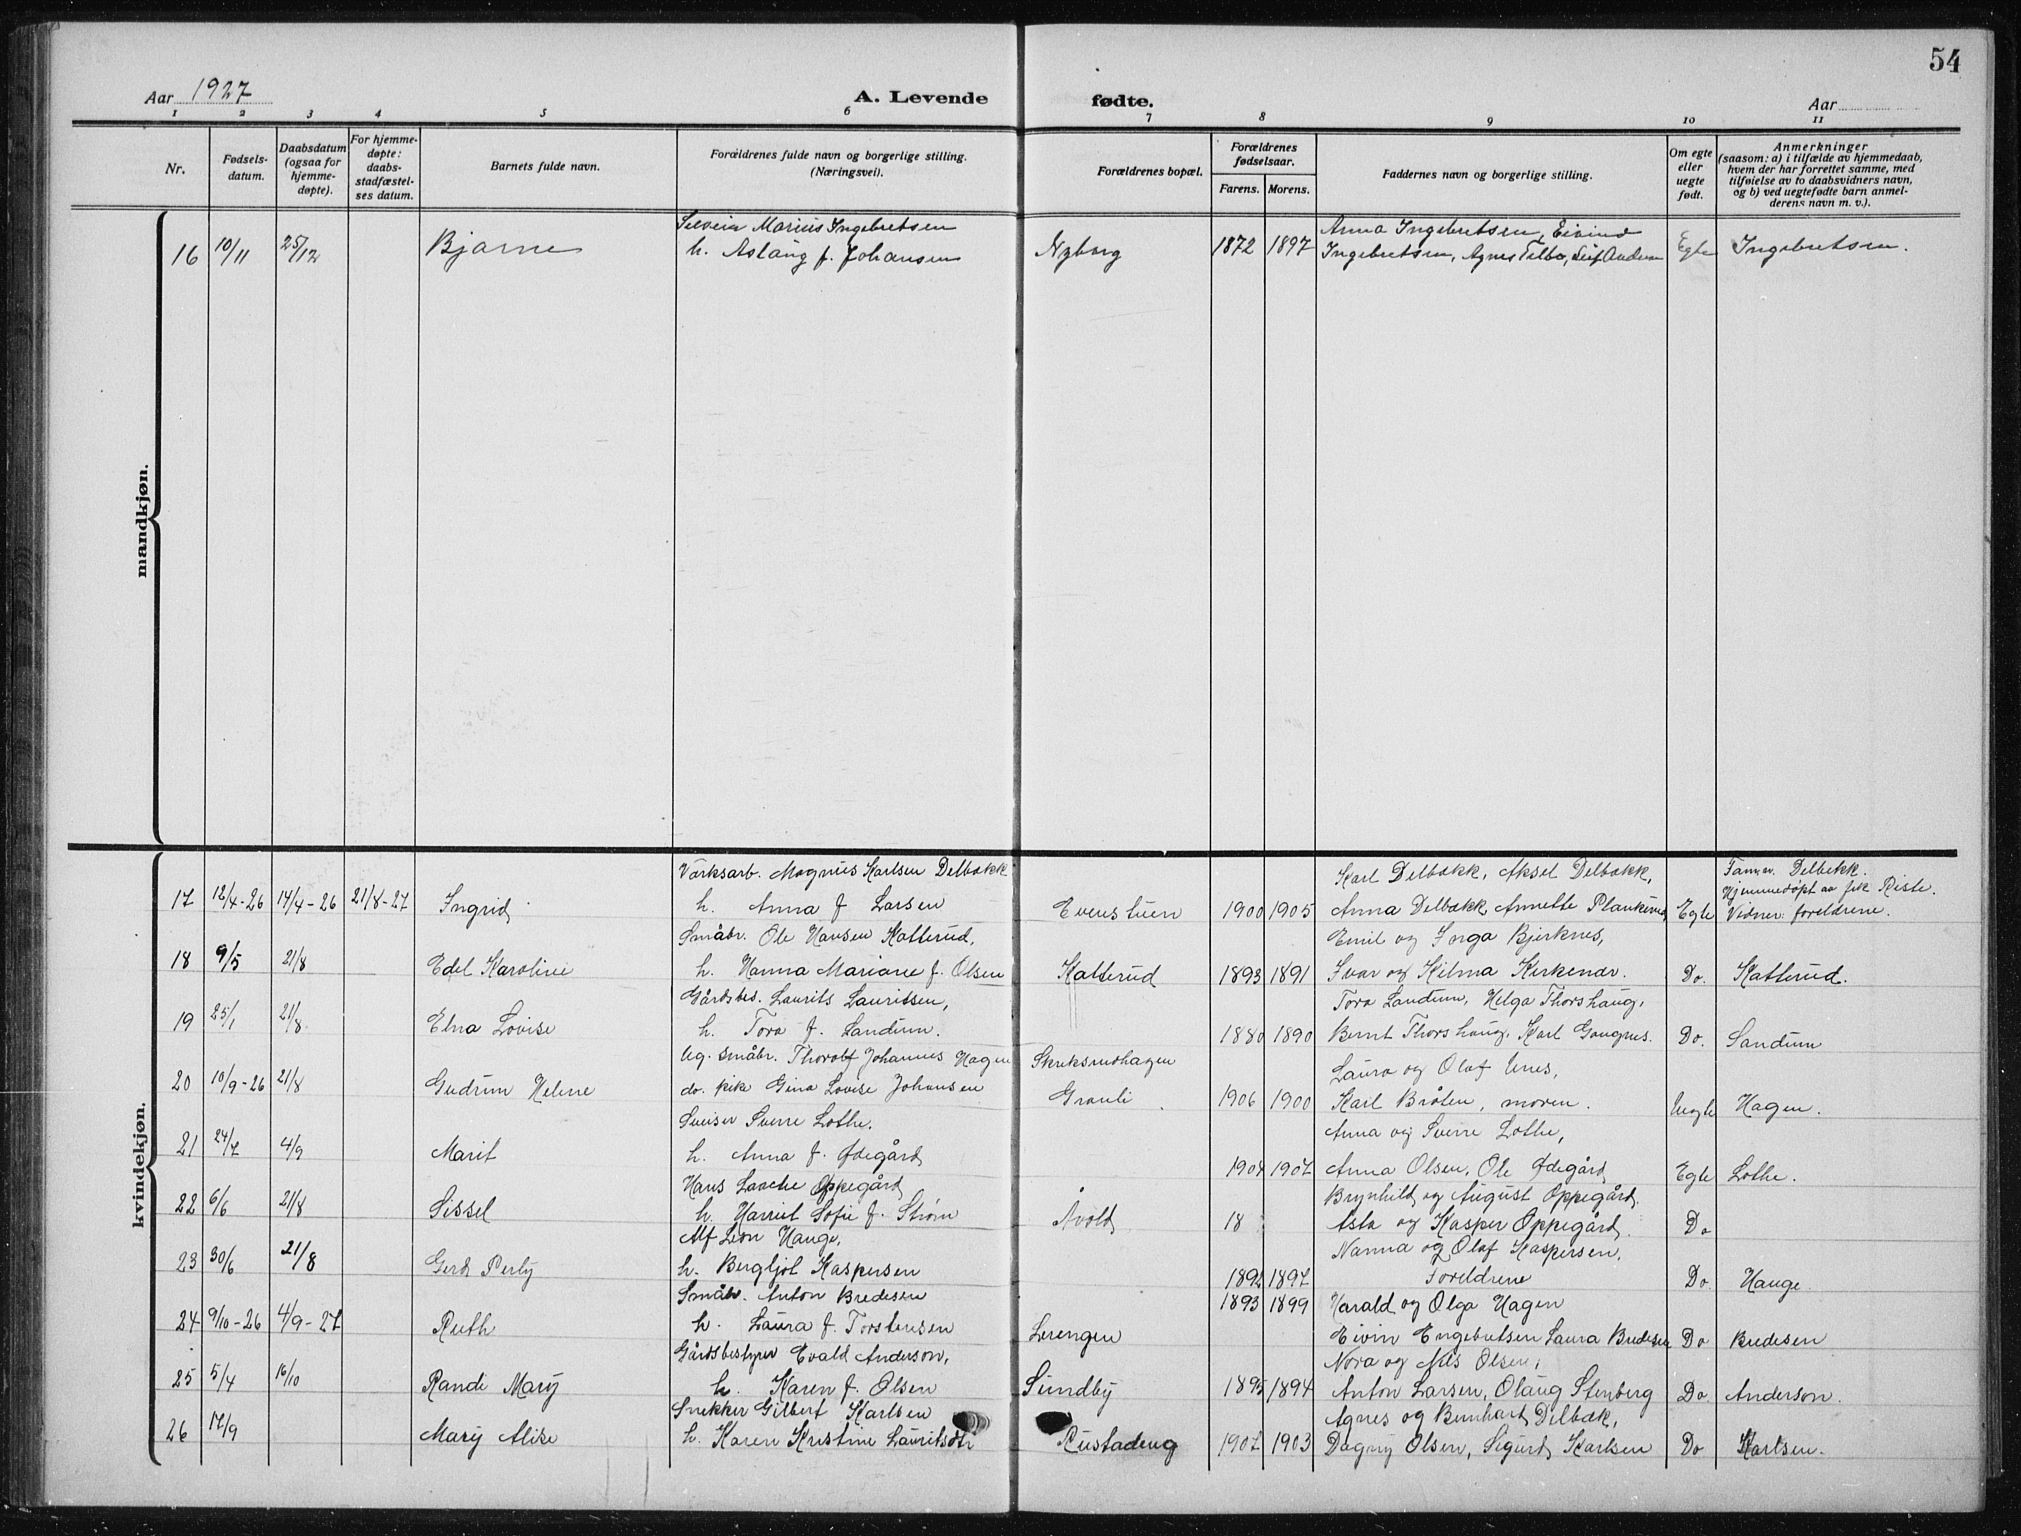 54
Aar 1927
A. Levende fødte.
Aar
1 2 3 4 5 6 7 8 9 10 11
Nr.
Fødsels-
datum.
Daabsdatum
(ogsaa for
hjemme-
døpte).
For hjemme-
døpte:
daabs-
stadfæstel-
ses datum.
Barnets fulde navn.
Forældrenes fulde navn og borgerlige stilling.
(Næringsvei).
Forældrenes bopæl.
Forældrenes
fødselsaar.
Farens. Morens.
Faddernes navn og borgerlige stilling.
Om egte
eller
uegte
født.
Anmerkninger
(saasom: a) i tilfælde av hjemmedaab,
hvem der har forrettet samme, med
tilføielse av to daabsvidners navn,
og b) ved uegtefødte barn anmel-
derens navn m. v.).
mandkjøn.
Marius Ingebretsen Anna Ingebretsen, Eivind
16 10/11 25/12 Bjarne h. Aslaug f. Johansen Nyborg 1872 1897 Ingebretsen, Agnes Egte Ingebretsen.
kvindekjøn.
Værksarb. Magnus Karlsen Delbækk Karl Delbækk, Aksel Delbækk, Delbekk.
Hjemmedøpt av frk Riste.
17 12/4-26 14/4-26 21/8-27 Ingrid h. Anna f Larsen Evenstuen 1900 1905 Anna Delbækk, Annette Plankerud Egte Vidner: foreldrene.
Småbr. Ole Hansen Katterud, Emil og Inga Bjerknes,
18 9/5 21/8 Edel Karoline h. Hanna Mariane f. Olsen Katterud 1893 1891 Ivar og Hilma Kirkenær. Do. Katterud.
Gårdbes. Laurits Lauritsen, Tora Sandum, Helga Thorshaug,
19 25/1 21/8 Elna Lovise h. Tora f. Sandum. 1880 1890 Bernt Thorshaug, Karl Gaugnes. Do. Sandum
Ug. småbr. Thorolf Johannes Hagen Skriksrudhagen Laura og Olaf
20 10/9-26 21/8 Gudrun Helene do. pike Gina Lovise Johansen Granli 1906 1900 Karl Bråten, moren. Uegte Hagen.
Sveiser Sverre Lothe. Anna og Sverre Lothe,
21 24/7 4/9 Marit h. Anna f. Ødegård 1907 Anna Olsen, Ole Ødegård Egte Lothe.
Hans Laache Oppegård Brynhild og August Oppegård.
22 6/6 21/8 Sissel h. Harriet Sofie f. Strøm Åvold 18 Asta og Kasper Oppegård. Do
Alf Leon Hauge, Nanna og Olaf Kaspersen,
23 30/6 21/8 Gerd Perly h. Bergljot Kaspersen 1892 1897 Foreldrene Do. Hauge.
Småbr. Anton Bredesen 1893 1899 Harald og Olga Hagen
24 9/10-26 4/9-27 Ruth h. Laura f. Torstensen Lerengen Eivin Engebretsen Laura Bredesen Do Bredesen
Gårdsbestyrer Evald Anderson, Nora og Nils Olsen,
25 5/4 16/10 Randi Mary h. Karen f. Olsen Sundby 1895 1894 Anton Larsen, Olaug Stenberg Do. Anderson.
Snekker Gilbert Karlsen Agnes og Bernhart Delbæk,
26 17/9 Mary Alise h. Karen Kristine Lauritsdtr Rustadeng 1907 1903 Dagny Olsen, Sigurd Karlsen Do Karlsen.